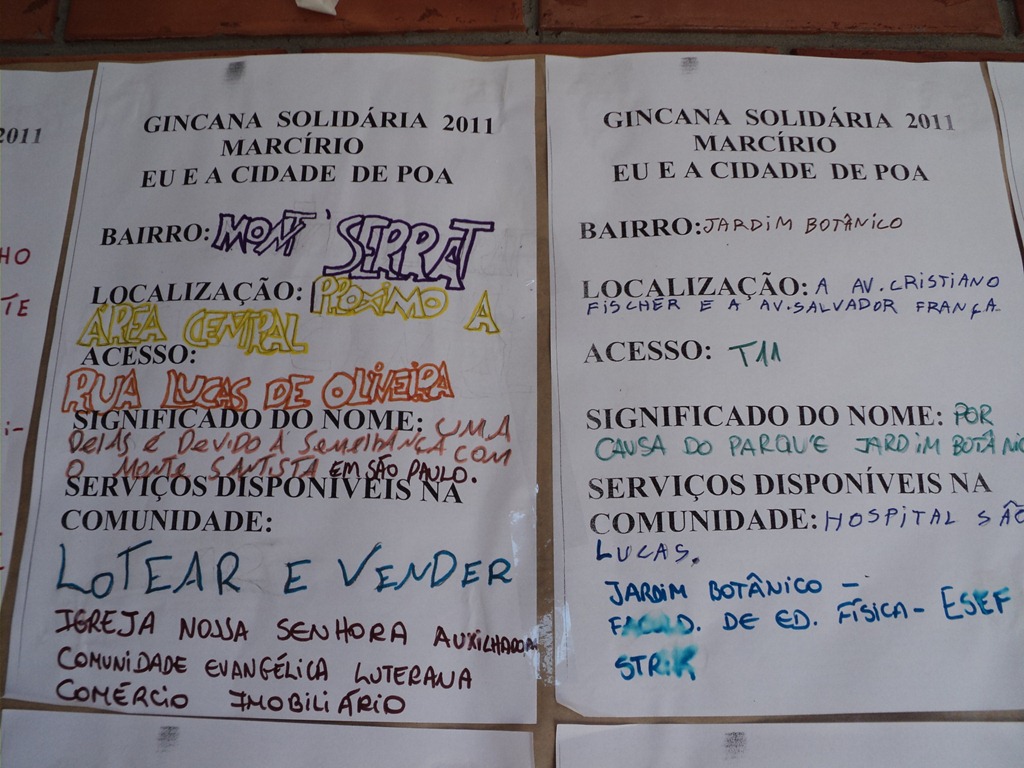 2011
HO
TE
i-
GINCANA SOLIDÁRIA 2011
MARCÍRIO
EU E A CIDADE DE POA
BAIRRO: MONT' SERRAT
LOCALIZAÇÃO: PRÓXIMO A
ÁREA CENTRAL
ACESSO:
RUA LUCAS DE OLIVEIRA
SIGNIFICADO DO NOME: UMA
DELAS É DEVIDO À SEMELHANÇA COM
O MONTE SANTISTA EM SÃO PAULO.
SERVIÇOS DISPONÍVEIS NA
COMUNIDADE:
LOTEAR E VENDER
IGREJA NOSSA SENHORA AUXILHADORA
COMUNIDADE EVANGÉLICA LUTERANA
COMÉRCIO IMOBILIÁRIO
GINCANA SOLIDÁRIA 2011
MARCÍRIO
EU E A CIDADE DE POA
BAIRRO: JARDIM BOTÂNICO
LOCALIZAÇÃO: A AV. CRISTIANO
FISCHER E A AV. SALVADOR FRANÇA.
ACESSO: T11
SIGNIFICADO DO NOME: POR
CAUSA DO PARQUE JARDIM BOTÂNIC
SERVIÇOS DISPONÍVEIS NA
COMUNIDADE: HOSPITAL SÃO
LUCAS.
JARDIM BOTÂNICO –
DE ED. FÍSICA – ESEF